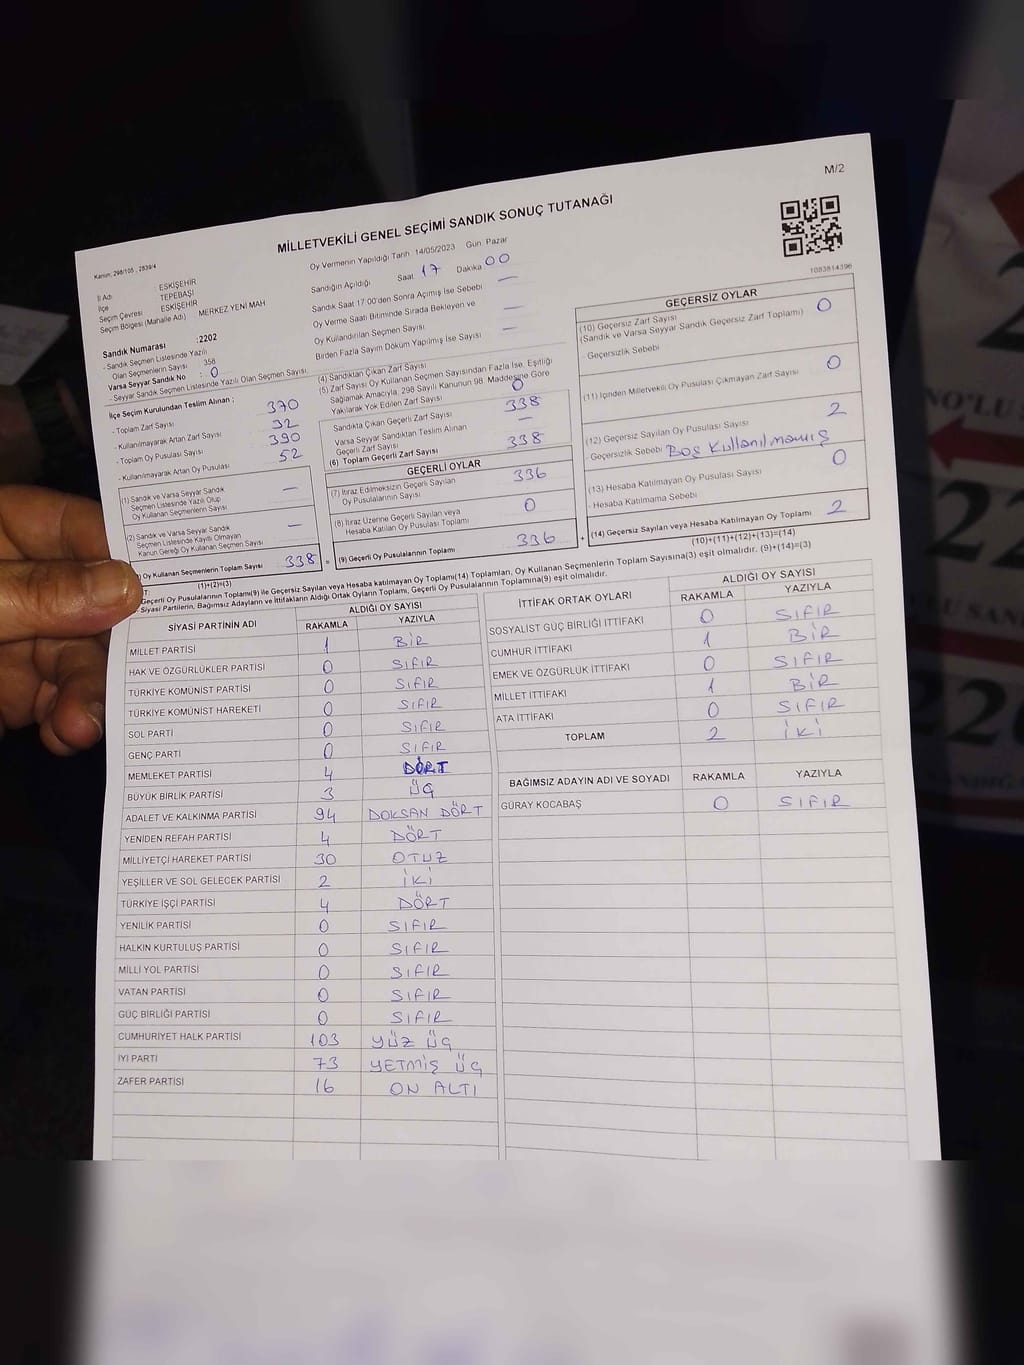 M/2
MİLLETVEKİLİ GENEL SEÇİMİ SANDIK SONUÇ TUTANAĞI
Kanun: 298/105 , 2839/4
1083814396
İl Adı : ESKİŞEHİR
İlçe : TEPEBAŞI
Seçim Çevresi : ESKİŞEHİR
Seçim Bölgesi (Mahalle Adı) : MERKEZ YENİ MAH
Sandık Numarası : 2202
- Sandık Seçmen Listesinde Yazılı
Olan Seçmenlerin Sayısı : 358
Varsa Seyyar Sandık No : 0
- Seyyar Sandık Seçmen Listesinde Yazılı Olan Seçmen Sayısı
Oy Vermenin Yapıldığı Tarih 14/05/2023 Gün Pazar
Sandığın Açıldığı Saat 17 Dakika 00
Sandık Saat 17:00'den Sonra Açılmış İse Sebebi —
Oy Verme Saati Bitiminde Sırada Bekleyen ve
Oy Kullandırılan Seçmen Sayısı —
Birden Fazla Sayım Döküm Yapılmış İse Sayısı —
İlçe Seçim Kurulundan Teslim Alınan ;
- Toplam Zarf Sayısı 370
- Kullanılmayarak Artan Zarf Sayısı 32
- Toplam Oy Pusulası Sayısı 390
- Kullanılmayarak Artan Oy Pusulası 52
(1) Sandık ve Varsa Seyyar Sandık
Seçmen Listesinde Yazılı Olup
Oy Kullanan Seçmenlerin Sayısı —
(2) Sandık ve Varsa Seyyar Sandık
Seçmen Listesinde Kayıtlı Olmayan
Kanun Gereği Oy Kullanan Seçmen Sayısı —
Oy Kullanan Seçmenlerin Toplam Sayısı 338
(1)+(2)=(3)
(4) Sandıktan Çıkan Zarf Sayısı
(5) Zarf Sayısı Oy Kullanan Seçmen Sayısından Fazla İse, Eşitliği
Sağlamak Amacıyla, 298 Sayılı Kanunun 98. Maddesine Göre
Yakılarak Yok Edilen Zarf Sayısı 0
Sandıkta Çıkan Geçerli Zarf Sayısı 338
Varsa Seyyar Sandıktan Teslim Alınan
Geçerli Zarf Sayısı —
(6) Toplam Geçerli Zarf Sayısı 338
GEÇERLİ OYLAR
(7) İtiraz Edilmeksizin Geçerli Sayılan
Oy Pusulalarının Sayısı 336
(8) İtiraz Üzerine Geçerli Sayılan veya
Hesaba Katılan Oy Pusulası Toplamı 0
= (9) Geçerli Oy Pusulalarının Toplamı 336 +
GEÇERSİZ OYLAR
(10) Geçersiz Zarf Sayısı 0
(Sandık ve Varsa Seyyar Sandık Geçersiz Zarf Toplamı)
Geçersizlik Sebebi
(11) İçinden Milletvekili Oy Pusulası Çıkmayan Zarf Sayısı 0
(12) Geçersiz Sayılan Oy Pusulası Sayısı 2
- Geçersizlik Sebebi Boş Kullanılmamış
(13) Hesaba Katılmayan Oy Pusulası Sayısı 0
- Hesaba Katılmama Sebebi
(14) Geçersiz Sayılan veya Hesaba Katılmayan Oy Toplamı 2
(10)+(11)+(12)+(13)=(14)
Geçerli Oy Pusulalarının Toplamı(9) ile Geçersiz Sayılan veya Hesaba katılmayan Oy Toplamı(14) Toplamları, Oy Kullanan Seçmenlerin Toplam Sayısına(3) eşit olmalıdır. (9)+(14)=(3)
Siyasi Partilerin, Bağımsız Adayların ve İttifakların Aldığı Ortak Oyların Toplamı, Geçerli Oy Pusulalarının Toplamına(9) eşit olmalıdır.
SİYASİ PARTİNİN ADI ALDIĞI OY SAYISI
RAKAMLA YAZIYLA
MİLLET PARTİSİ 1 BİR
HAK VE ÖZGÜRLÜKLER PARTİSİ 0 SIFIR
TÜRKİYE KOMÜNİST PARTİSİ 0 SIFIR
TÜRKİYE KOMÜNİST HAREKETİ 0 SIFIR
SOL PARTİ 0 SIFIR
GENÇ PARTİ 0 SIFIR
MEMLEKET PARTİSİ 4 DÖRT
BÜYÜK BİRLİK PARTİSİ 3 ÜÇ
ADALET VE KALKINMA PARTİSİ 94 DOKSAN DÖRT
YENİDEN REFAH PARTİSİ 4 DÖRT
MİLLİYETÇİ HAREKET PARTİSİ 30 OTUZ
YEŞİLLER VE SOL GELECEK PARTİSİ 2 İKİ
TÜRKİYE İŞÇİ PARTİSİ 4 DÖRT
YENİLİK PARTİSİ 0 SIFIR
HALKIN KURTULUŞ PARTİSİ 0 SIFIR
MİLLİ YOL PARTİSİ 0 SIFIR
VATAN PARTİSİ 0 SIFIR
GÜÇ BİRLİĞİ PARTİSİ 0 SIFIR
CUMHURİYET HALK PARTİSİ 103 YÜZ ÜÇ
İYİ PARTİ 73 YETMİŞ ÜÇ
ZAFER PARTİSİ 16 ON ALTI
İTTİFAK ORTAK OYLARI ALDIĞI OY SAYISI
RAKAMLA YAZIYLA
SOSYALİST GÜÇ BİRLİĞİ İTTİFAKI 0 SIFIR
CUMHUR İTTİFAKI 1 BİR
EMEK VE ÖZGÜRLÜK İTTİFAKI 0 SIFIR
MİLLET İTTİFAKI 1 BİR
ATA İTTİFAKI 0 SIFIR
TOPLAM 2 İKİ
BAĞIMSIZ ADAYIN ADI VE SOYADI RAKAMLA YAZIYLA
GÜRAY KOCABAŞ 0 SIFIR